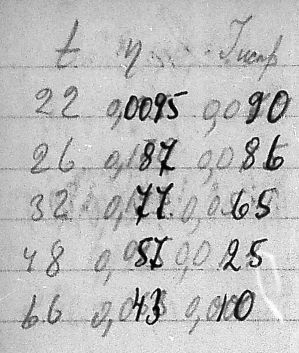 t η Тисп
22 0,0095 0,090
26 0,0087 0,086
32 0,0077 0,065
48 0,0057 0,025
66 0,0043 0,010